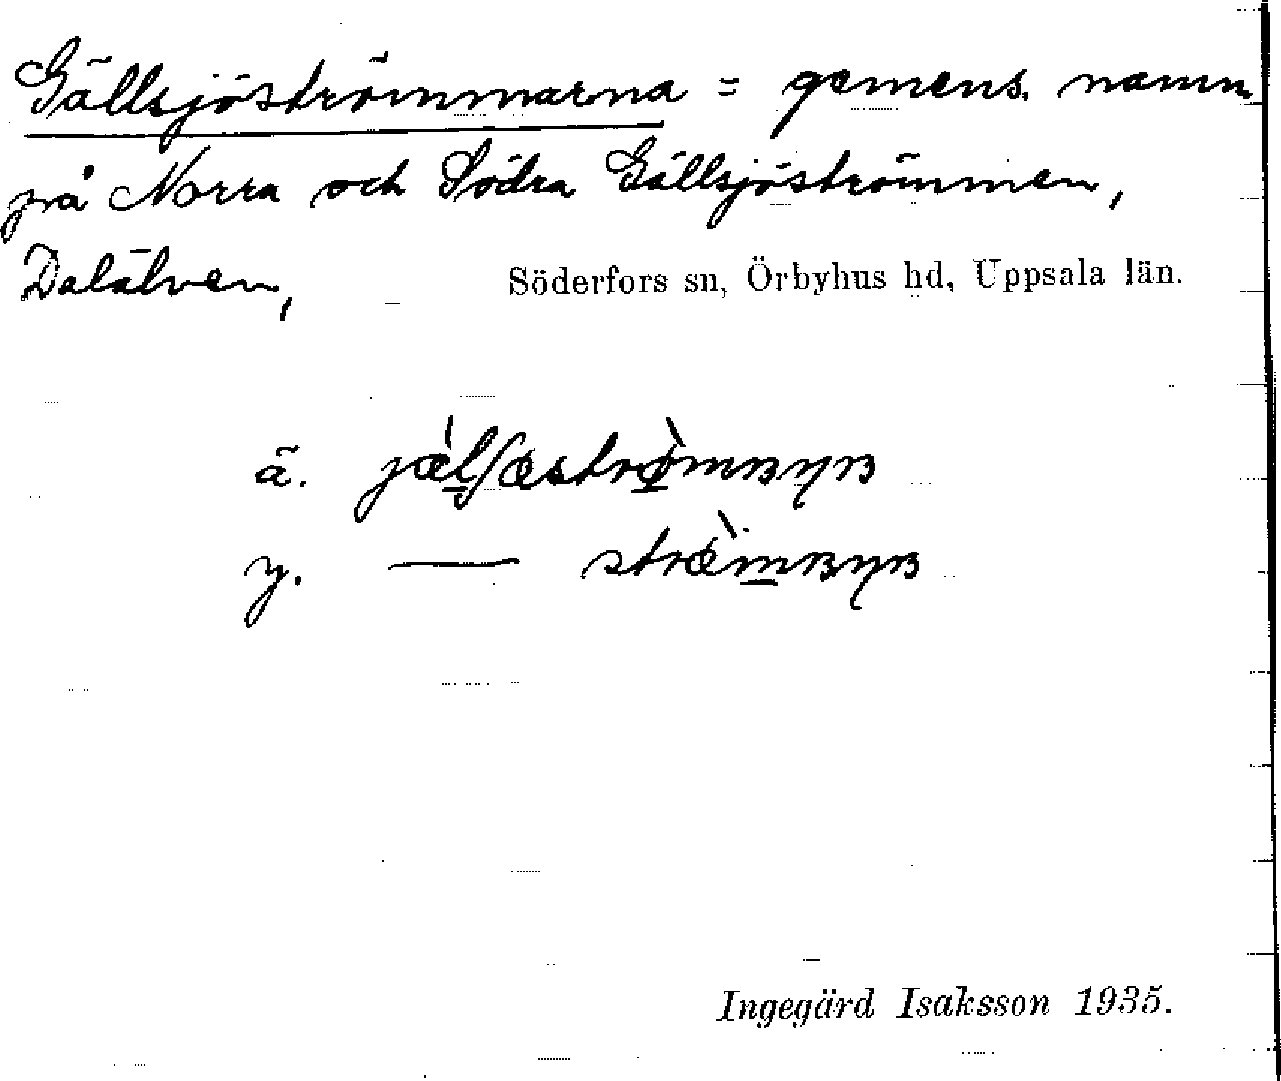 Gällsjöströmmarna = gemens. namn
på Norra och Södra Gällsjöströmmen,
Dalälven, Söderfors sn, Örbyhus hd, Uppsala län.
ä.
y. —
Ingegärd Isaksson 1935.